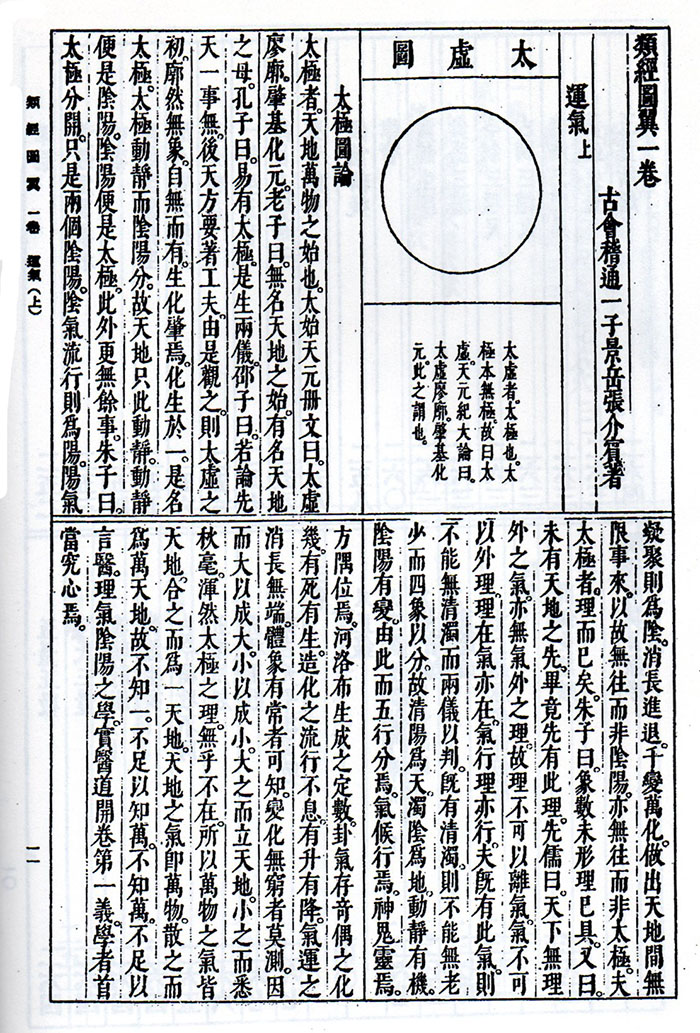 類經圖翼一卷
古會稽通一子景岳張介賓著
運氣上
太虛圖
太虛者。太極也。太
極本無極。故曰太
虛。天元紀大論曰。
太虛廖廓。肇基化
元。此之謂也。
太極圖論
太極者。天地萬物之始也。太始天元冊文曰。太虛
廖廓。肇基化元。老子曰。無名天地之始。有名天地
之母。孔子曰。易有太極。是生兩儀。邵子曰。若論先
天一事無。後天方要著工夫。由是觀之。則太虛之
初。廓然無象。自無而有。生化肇焉。化生於一。是名
太極。太極動靜而陰陽分。故天地只此動靜。動靜
便是陰陽。陰陽便是太極。此外更無餘事。朱子曰。
太極分開。只是兩個陰陽。陰氣流行則爲陽。陽氣
凝聚則爲陰。消長進退。千變萬化。做出天地間無
限事來。以故無往而非陰陽。亦無往而非太極。夫
太極者。理而已矣。朱子曰。象數未形理已具。又曰。
未有天地之先。畢竟先有此理。先儒曰。天下無理
外之氣。亦無氣外之理。故理不可以離氣。氣不可
以外理。理在氣亦在。氣行理亦行。夫既有此氣。則
不能無清濁而兩儀以判。既有清濁。則不能無老
少而四象以分。故清陽爲天。濁陰爲地。動靜有機。
陰陽有變。由此而五行分焉。氣候行焉。神鬼靈焉。
方隅位焉。河洛布生成之定數。卦氣存奇偶之化
幾。有死有生。造化之流行不息。有升有降。氣運之
消長無端。體象有常者可知。變化無窮者莫測。因
而大以成大。小以成小。大之而立天地。小之而悉
秋毫。渾然太極之理。無乎不在。所以萬物之氣皆
天地。合之而爲一天地。天地之氣卽萬物。散之而
爲萬天地。故不知一。不足以知萬。不知萬。不足以
言醫。理氣陰陽之學。實醫道開卷第一義。學者首
當究心焉。
類經圖翼 一卷 運氣(上)
一一